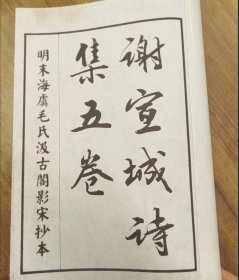 谢宣城诗
集五卷
明末海虞毛氏汲古阁影宋抄本